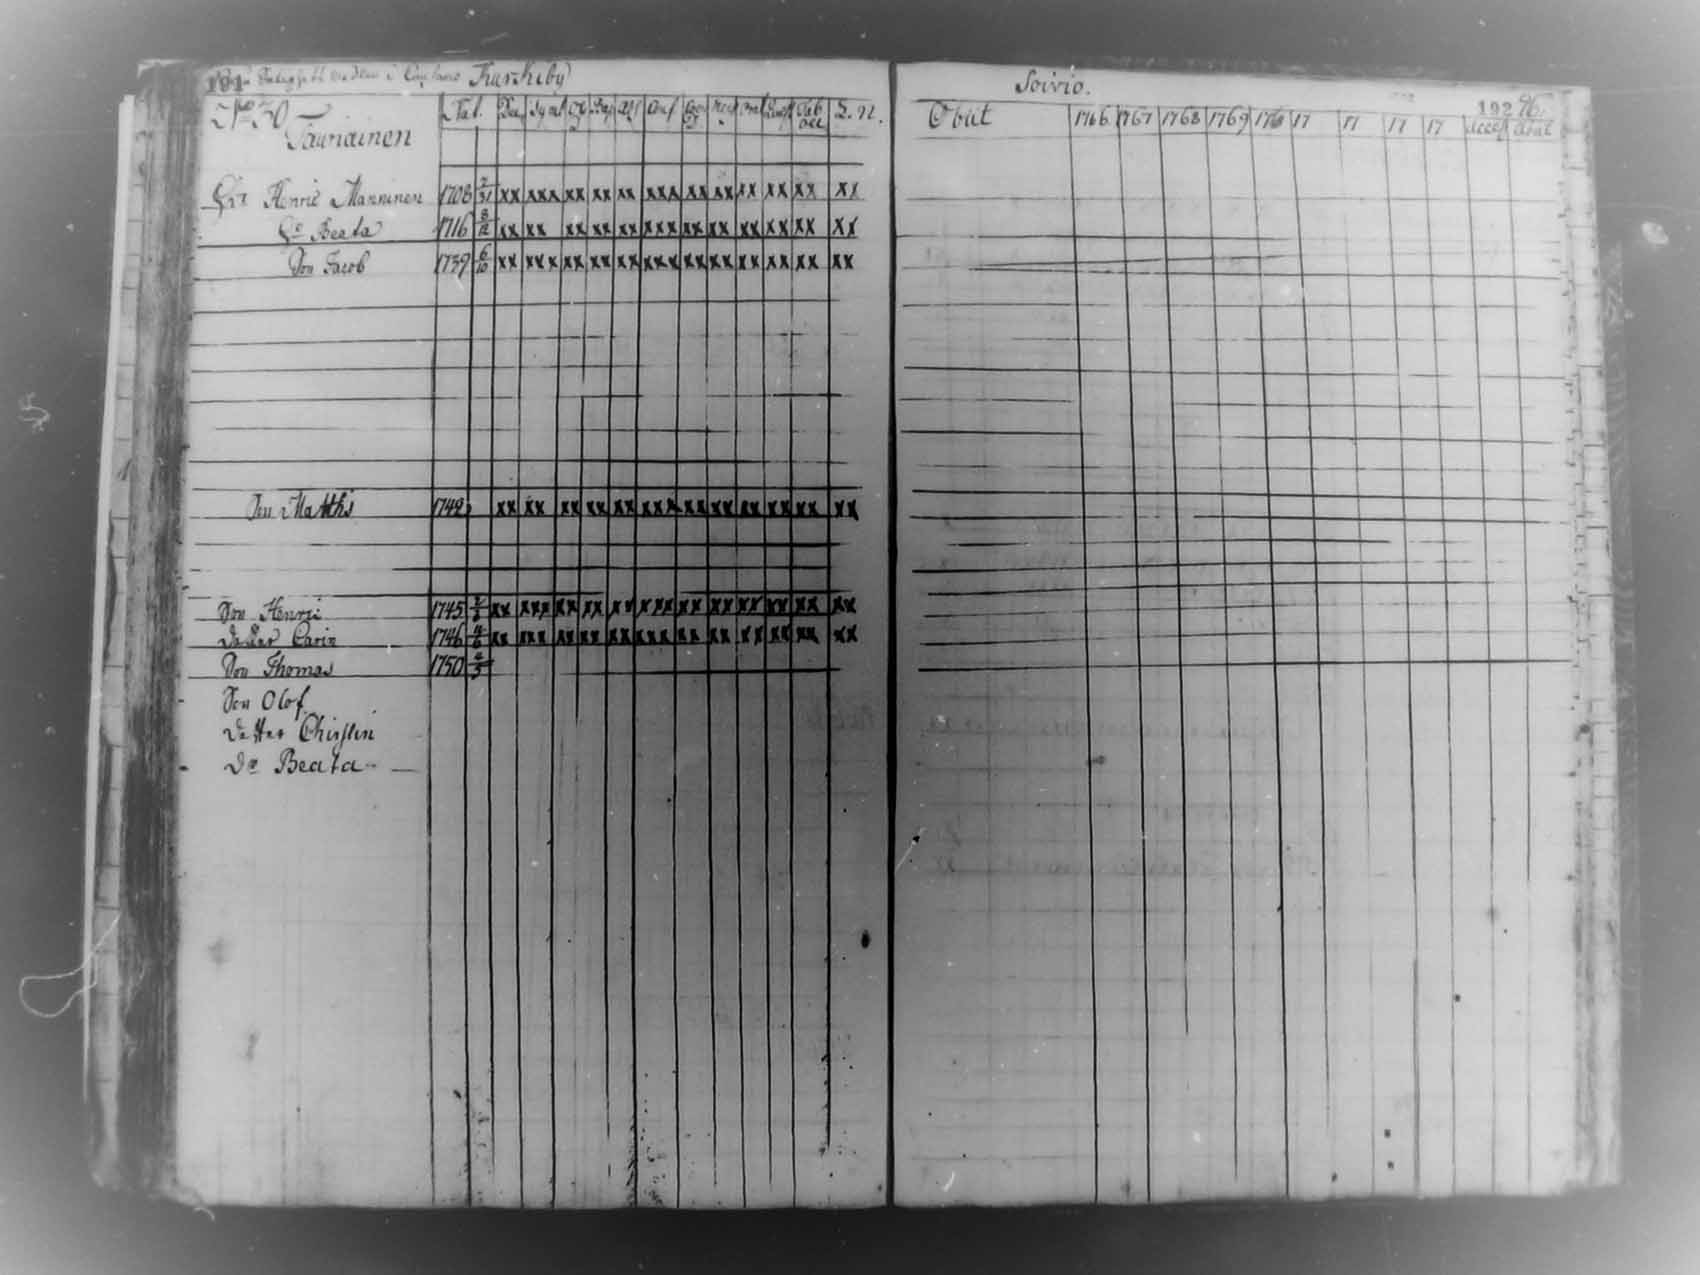 191 Kurckiby
No 30 Nat.
Tauriainen
Hr Henric Manninen 1708 2/31 xx xxx xx xx xx xxx xx xx xx xx xx xx
Hu Beata 1716 8/12 xx xx xx xx xx xxx xx xx xx xx xx xx
Son Jacob 1739 6/10 xx xxx xx xx xx xxx xx xx xx xx xx xx
Son Matths 1742 xx xx xx xx xx xxx xx xx xx xx xx xx
Son Henric 1745 xx xxx xx xx xx xxx xx xx xx xx xx xx
Dotter Carin 1746 xx xxx xx xx xx xxx xx xx xx xx xx xx
Son Thomas 1750
Son Olof
Dotter Christin
Do Beata
Soivio.
192 96.
Obiit 1766 1767 1768 1769 17 17 17 17 Accessit Abiit